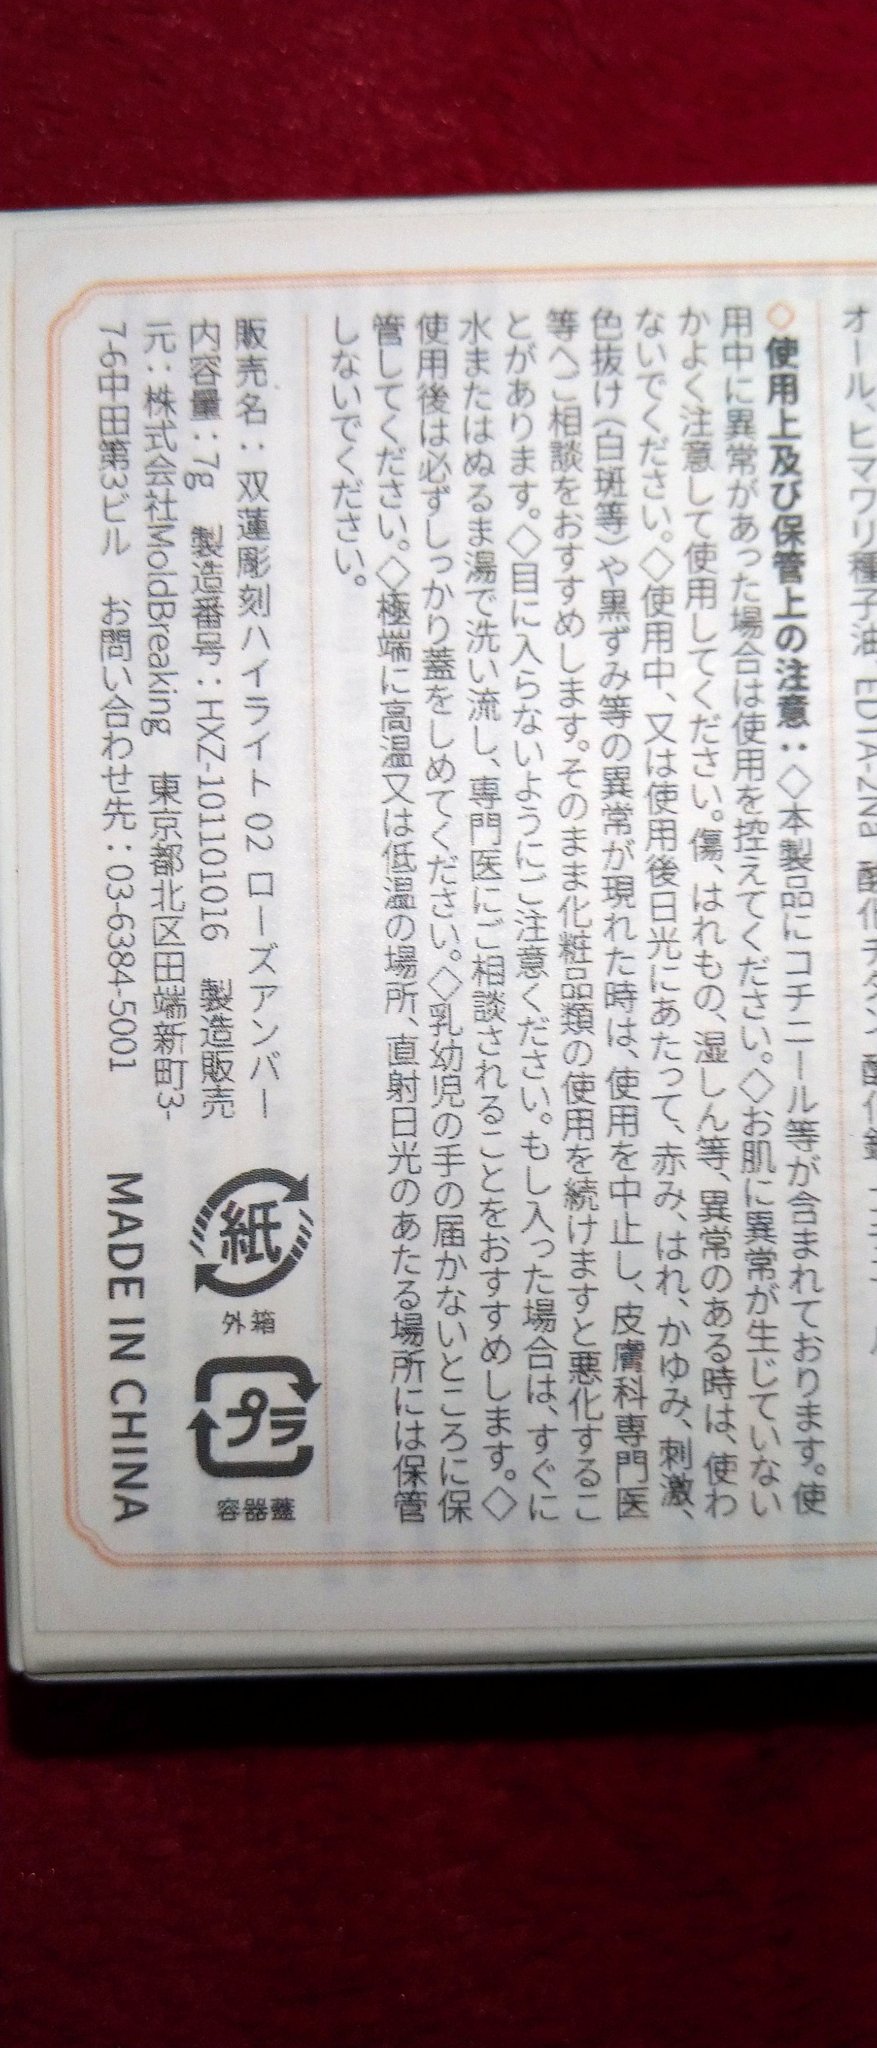 オール、ヒマワリ種子油、EDTA-2Na
◇使用上及び保管上の注意：◇本製品にコチニール等が含まれております。使
用中に異常があった場合は使用を控えてください。◇お肌に異常が生じていない
かよく注意して使用してください。傷、はれもの、湿しん等、異常のある時は、使わ
ないでください。◇使用中、又は使用後日光にあたって、赤み、はれ、かゆみ、刺激、
色抜け（白斑等）や黒ずみ等の異常が現れた時は、使用を中止し、皮膚科専門医
等へご相談をおすすめします。そのまま化粧品類の使用を続けますと悪化するこ
とがあります。◇目に入らないようにご注意ください。もし入った場合は、すぐに
水またはぬるま湯で洗い流し、専門医にご相談されることをおすすめします。◇
使用後は必ずしっかり蓋をしめてください。◇乳幼児の手の届かないところに保
管してください。◇極端に高温又は低温の場所、直射日光のあたる場所には保管
しないでください。
販売名：双蓮彫刻ハイライト 02 ローズアンバー
内容量：7g 製造番号：HXZ-101101016 製造販売
元：株式会社MoldBreaking 東京都北区田端新町3-
7-6中田第3ビル お問い合わせ先：03-6384-5001
紙
外箱
プラ
容器蓋
MADE IN CHINA